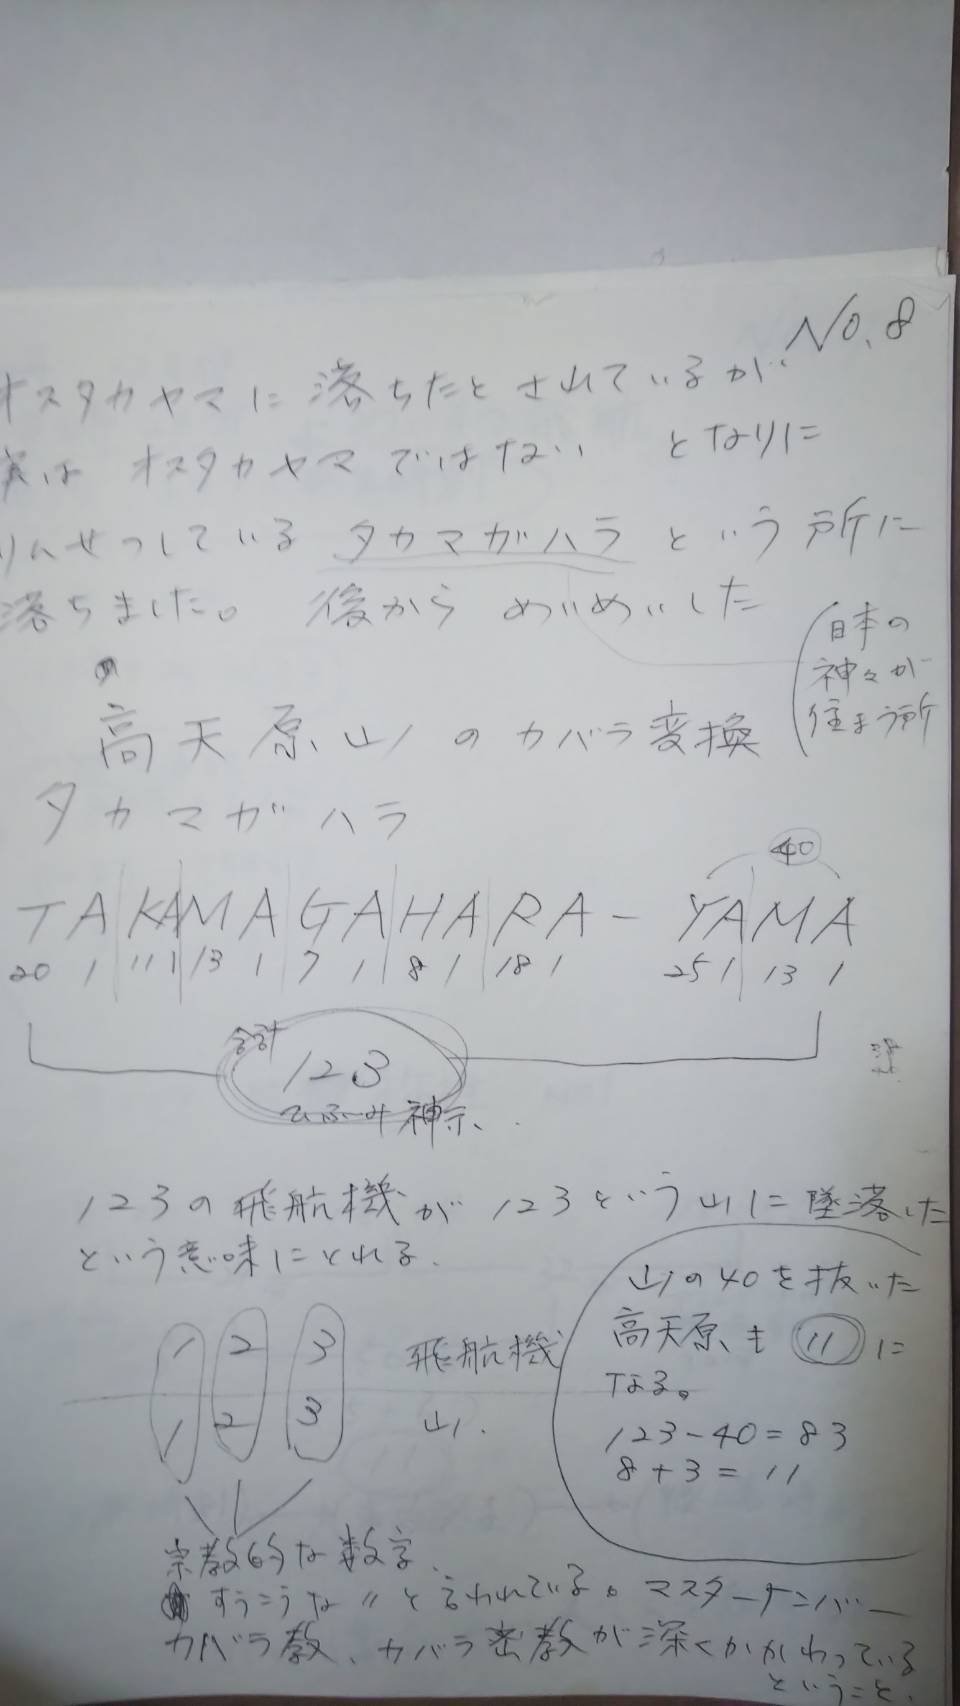 No.8
オスタカヤマに落ちたとされているが、
実は オスタカヤマではない となりに
りんせつしている タカマガハラ という所に
落ちました。 後から めいめいした
(日本の
神々が
住まう所
高天原山のカバラ変換
タカマガハラ
40
TA KAMA GA HARA - YAMA
20 1 11 1 13 1 7 1 8 1 18 1 25 1 13 1
合計
123
ひふみ神示、
123の飛行機が 123という山に墜落した
という意味にとれる.
1 2 3 飛行機
1 2 3 山.
山の40を抜いた
高天原も 11 に
なる。
123-40=83
8+3=11
宗教的な数字.
すうこうな 〃 と言われている。マスターナンバー
カバラ教、カバラ密教が深くかかわっている
ということ.